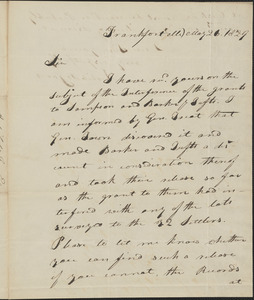 Frankfort (Me) May 26. 1829
Sir
I have rec. yours on the
subject of the Interference of the grants
to Sampson and Barker & Tufts. I
am informed by Gen
that
Gen
discovered it and
made Barker and Tufts a dis
count in consideration thereof
and took their release so far
as the grant to them had in-
terfered with any of the lots
surveyed to the 32 Settlers.
Please to let me know whether
you can find such a release
if you cannot, the Records
at